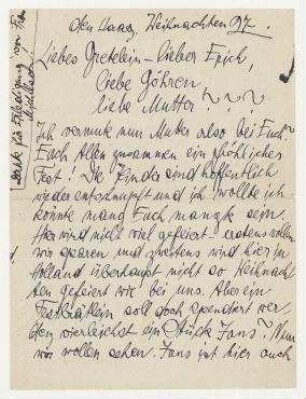 den Haag, Weihnachten 97.
Liebes Gretelein – lieber Erich,
liebe Göhren
liebe Mutter ? ? ?
Ich vermute nun Mutter also bei Euch.
Euch Allen zusammen ein fröhliches
Fest! Die Kinder sind hoffentlich
wieder entschnupft und ich wollte ich
könnte mang Euch mangk sein.
Hier wird nicht viel gefeiert erstens sollen
wir sparen und zweitens wird hier in
Holland überhaupt nicht so Weihnach
ten gefeiert wie bei uns. Aber ein
Festbrätlein soll doch spendiert wer-
den vielleicht ein Stück Gans? Nun
wir wollen sehen. Gans ist hier auch
Dank für Erledigung von